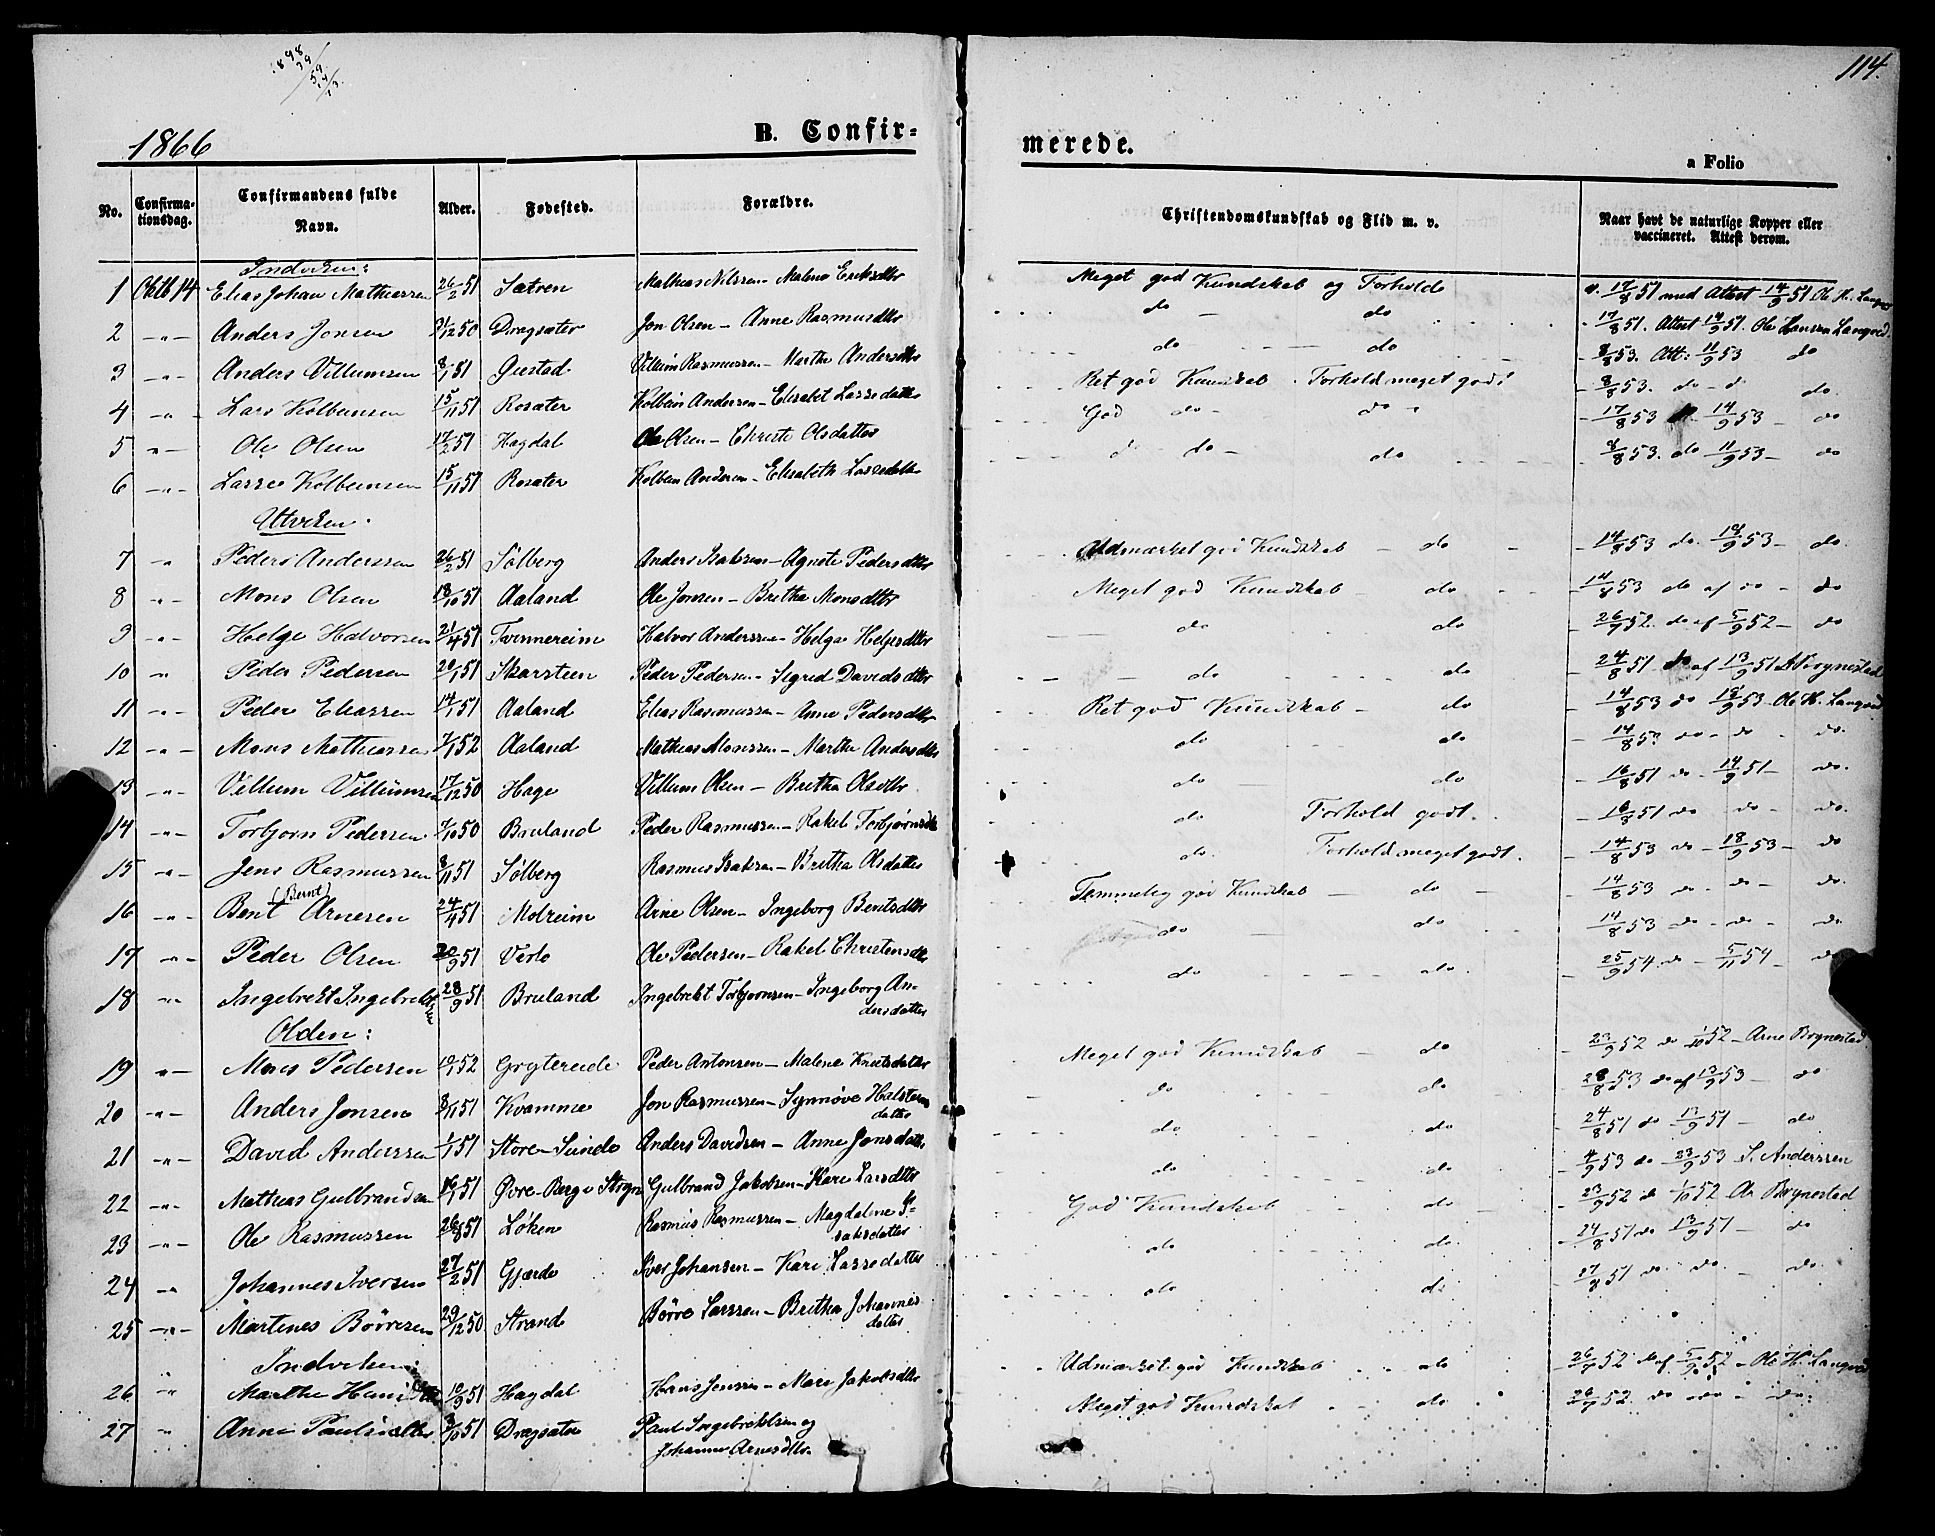 114.
1866
B. Confir-
merede.
a Folio
No. Confirmationsdag. Confirmandens fulde Navn. Alder. Fødested. Forældre. Christendomskundskab og Flid m. v. Naar havt de naturlige Kopper eller vaccineret. Attest derom.
Indviken:
1 Oktb 14 Elias Johan Mathiassen 26/2 51 Sætren Mathias Nilssen - Malene Eriksdtr Meget god Kundskab og Forholde v. 17/8 51 med Attest 14/9 51 Ole H. Langved
2 -"- Anders Jonsen 31/12 50 Dragsæter Jon Olsen - Anne Rasmusdtr do - do 17/8 51. Attest 14/9 51. Ole Hansen Langved
3 -"- Anders Villumsen 8/1 51 Giestad Villum Rasmussen - Marthe Andersdtr do - do 8/8 53. Att: 11/9 53 do
4 -"- Lars Kolbeinsen 15/11 51 Rosæter Kolbein Andersen - Elisabet Lassedatter Ret god Kundskab. Forhold meget godt 8/8 53. do - d do.
5 -"- Ole Olsen 17/2 51 Hagdal Ole Olsen - Christi Olsdatter God do - do - 17/8 53 14/9 53 - do
6 -"- Lasse Kolbeinsen 15/11 51 Rosæter Kolbein Andersen - Elisabeth Lassedatter d - do - do 8/8 53. do 11/9 53 - do
Utviken.
7 -"- Peder Anderssen 26/2 51 Sølberg Anders Isaksen - Agnete Pedersdtr Udmærket god Kundskab - do - 14/8 53 do. 18/9 53 - do.
8 -"- Mons Olsen 18/10 51 Aaland Ole Jonsen - Bretha Monsdtr Meget god Kundskab do 14/8 53 do af do - do
9 -"- Helge Halvorsen 21/4 51 Tvinnereim Halvor Anderssen - Helga Helgesdtr do do 26/7 52. do af 5/9 52 - do
10 -"- Peder Pedersen 20/1 51 Skarsteen Peder Pedersen - Sigred Davidsdtr do do 24/8 51 do af 13/9 51 A Brynestad
11 -"- Peder Eliassen 14/1 51 Aaland Elias Rasmussen - Anne Pedersdtr Ret god Kundskab - do 14/8 53 do 18/9 53 - Ole H. Langved
12 -"- Mons Mathiassen 7/1 52 Aaland Mathias Monssen - Marthe Andersdtr do do 14/8 53 do - do - do.
13 -"- Villum Villumsen 17/12 50 Hage Villum Olsen - Bretha Olsdtr do do 16/8 51 do - 14/9 51 - do.
14 -"- Torbjørn Pedersen 7/10 50 Bruland Peder Rasmussen - Rakel Torbjørnsdtr do Forhold godt. 16/8 51 do do - do
15 -"- Jens Rasmussen 8/11 51 Sølberg Rasmus Isaksen - Bretha Olsdatter do. Forhold meget godt. 14/8 53 do - 18/9 53 - do
(Bernt)
16 -"- Bent Arnesen 24/4 51 Molreim Arne Olsen - Ingeborg Bentsdtr Temmelig god Kundskab - do - 14/8 53 do - do - do.
17 -"- Peder Olsen 20/9 51 Verlo Ole Pedersen - Rakel Christensdtr do - do 14/8 53 do - do - do.
18 -"- Ingebrekt Ingebrektsen 28/9 51 Bruland Ingebrekt Torbjørnsen - Ingeborg Andersdatter do do. 25/9 54 do - 5/11 54 - do
Olden:
19 -"- Mons Pedersen 10/1 52 Gryterede Peder Antonsen - Malene Knutsdatter Meget god Kundskab - do 23/9 52 do 1/10 52 - Arne Brynestad
20 -"- Anders Jonsen 8/11 51 Kvamme Jon Rasmussen - Synnøve Halstensdatter do do 28/8 53 do af 13/9 53 - do
21 -"- Daviđ Anderssen 1/1 51 Store-Sunde Anders Davidsen - Anne Jonsdatter do do 24/8 51 do 13/9 51 - do
22 -"- Mathias Gulbrandsen 16/1 51 Øvre-Berge Stryn Gulbrand Jakobsen - Kari Larsdtr do do 4/9 53 do 23/9 53 S. Anderssen
23 -"- Ole Rasmussen 26/8 51 Løken Rasmus Rasmussen - Magdalene Isaksdatter God Kundskab - do 23/9 52 do 1/10 52 A Brynestad
24 -"- Johannes Iversen 27/2 51 Gjærde Iver Johansen - Kari Lassedatter do do. 24/8 51 do 13/9 51 - do
25 -"- Martines Børresen 29/12 50 Strand Børre Larssen - Bretha Johannesdatter do do 27/8 51 do. do. - do.
Indviken:
26 -"- Marthe Hansdtr 10/9 51 Hagdal Hans Jenssen - Mari Jakobsdtr Udmærket god Kundskab - do 26/7 52 do af 5/9 52 - Ole H. Langved
27 " Anne Paulsdatter 3/10 51 Dragsæter Paul Ingebrektsen og Johanne Arnesdtr. Meget god Kundskab - do 26/7 52. do do - do.